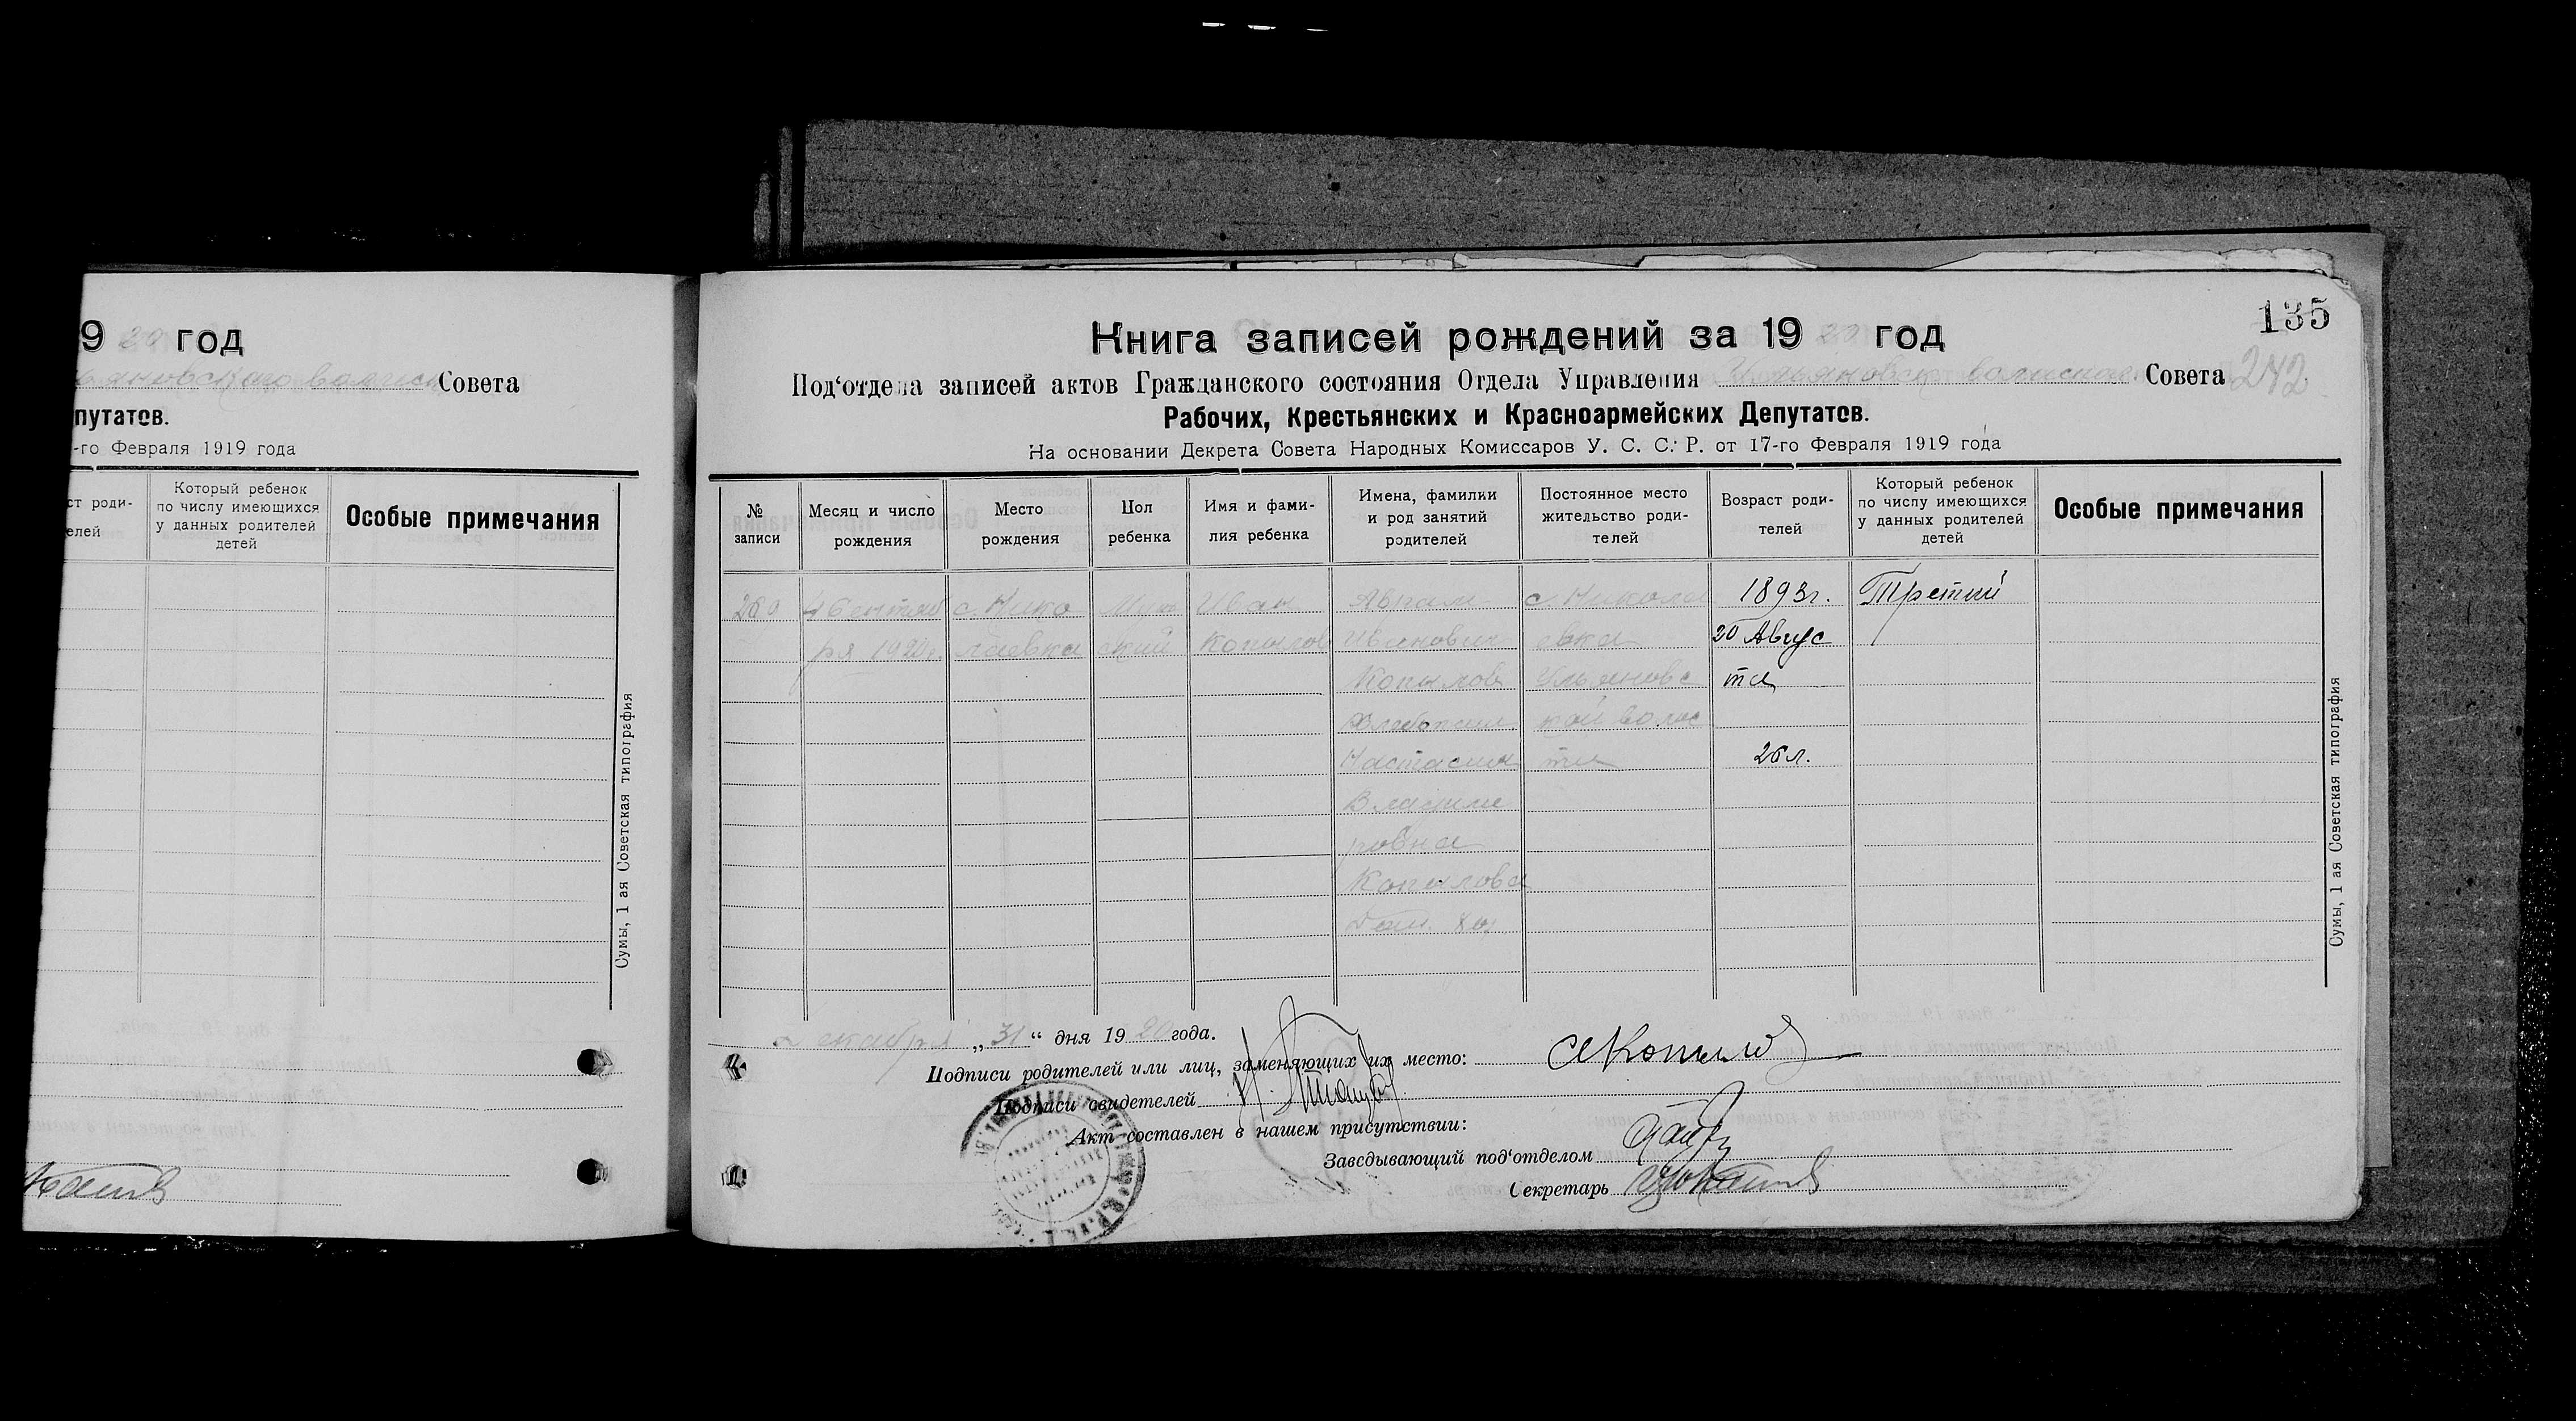 9 20 год
ьяновского волисп Совета
путатов.
-го Февраля 1919 года
ст роди-
елей
Который ребенок
по числу имеющихся
у данных родителей
детей
Особые примечания
Сумы, 1 ая Советская типография
135
Книга записей рождений за 19 20 год
Под‘отдела записей актов Гражданского состояния Отдела Управления Ульяновск волиспол. Совета
242
Рабочих, Крестьянских и Красноармейских Депутатов.
На основании Декрета Совета Народных Комиссаров У. С. С. Р. от 17-го Февраля 1919 года
№
записи
Месяц и число
рождения
Место
рождения
Пол
ребенка
Имя и фами-
лия ребенка
Имена, фамилки
и род занятий
родителей
Постоянное место
жительство роди-
телей
Возраст роди-
телей
Который ребенок
по числу имеющихся
у данных родителей
детей
Особые примечания
сентяб
ря 1920 г.
с. Нико
лаевка
Муж
ский
Иван
Копылов
Аврам
Иванович
Копылов
Хлебопаш
Настасия
Владими
ровна
Копылова
Дом. хоз
с. Никола
евка
Ульяновс
кой волос
ти
1893г.
20 Авгус
та
26 л.
Третий
Сумы, 1 ая Советская типография
декабря „31“ дня 19 20 года.
Подписи родителей или лиц, заменяющих их место: АКопылов
Подписи свидетелей
Акт составлен в нашем присутствии:
Заведывающий под‘отделом
Секретарь